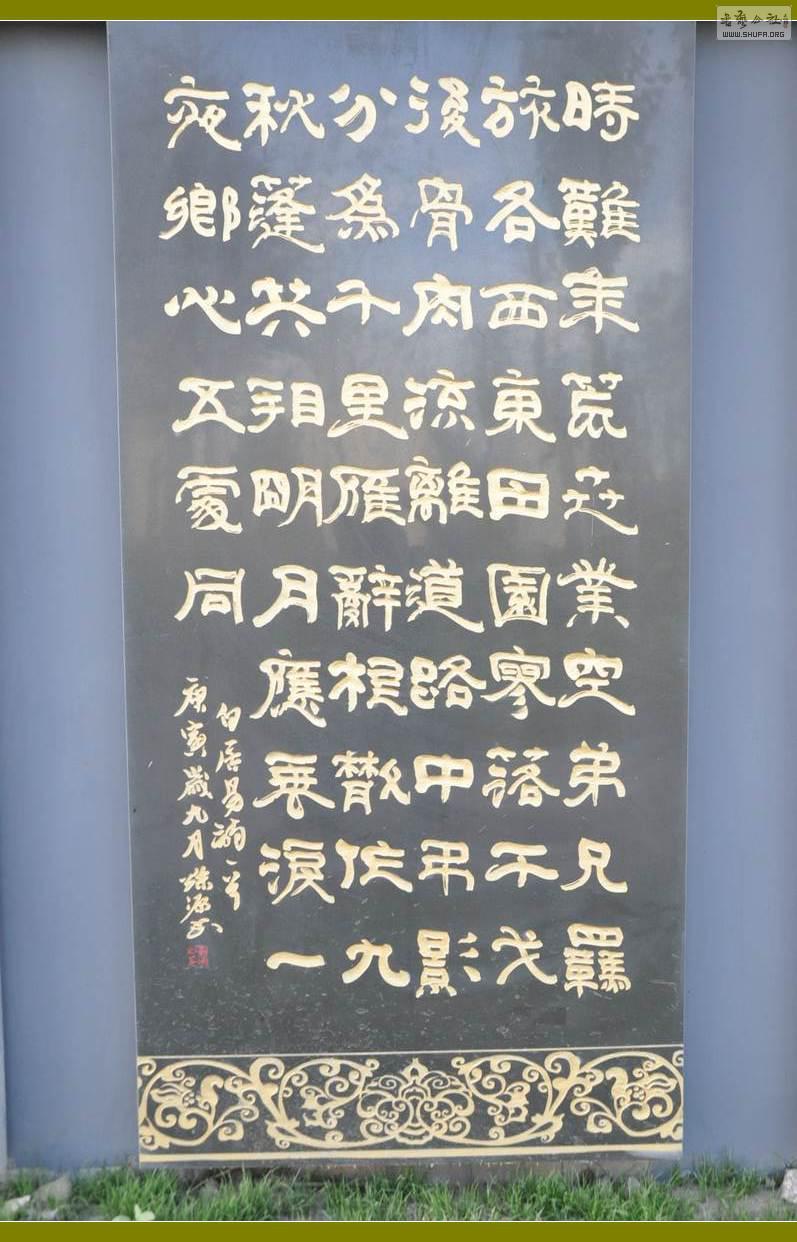 時難年荒世業空弟兄羈
旅各西東田園寥落干戈
後骨肉流離道路中弔影
分爲千里雁辭根散作九
秋蓬共看明月應垂淚一
夜鄉心五處同
白居易詩一首
庚寅歲九月
書藝公社
WWW.SHUFA.ORG